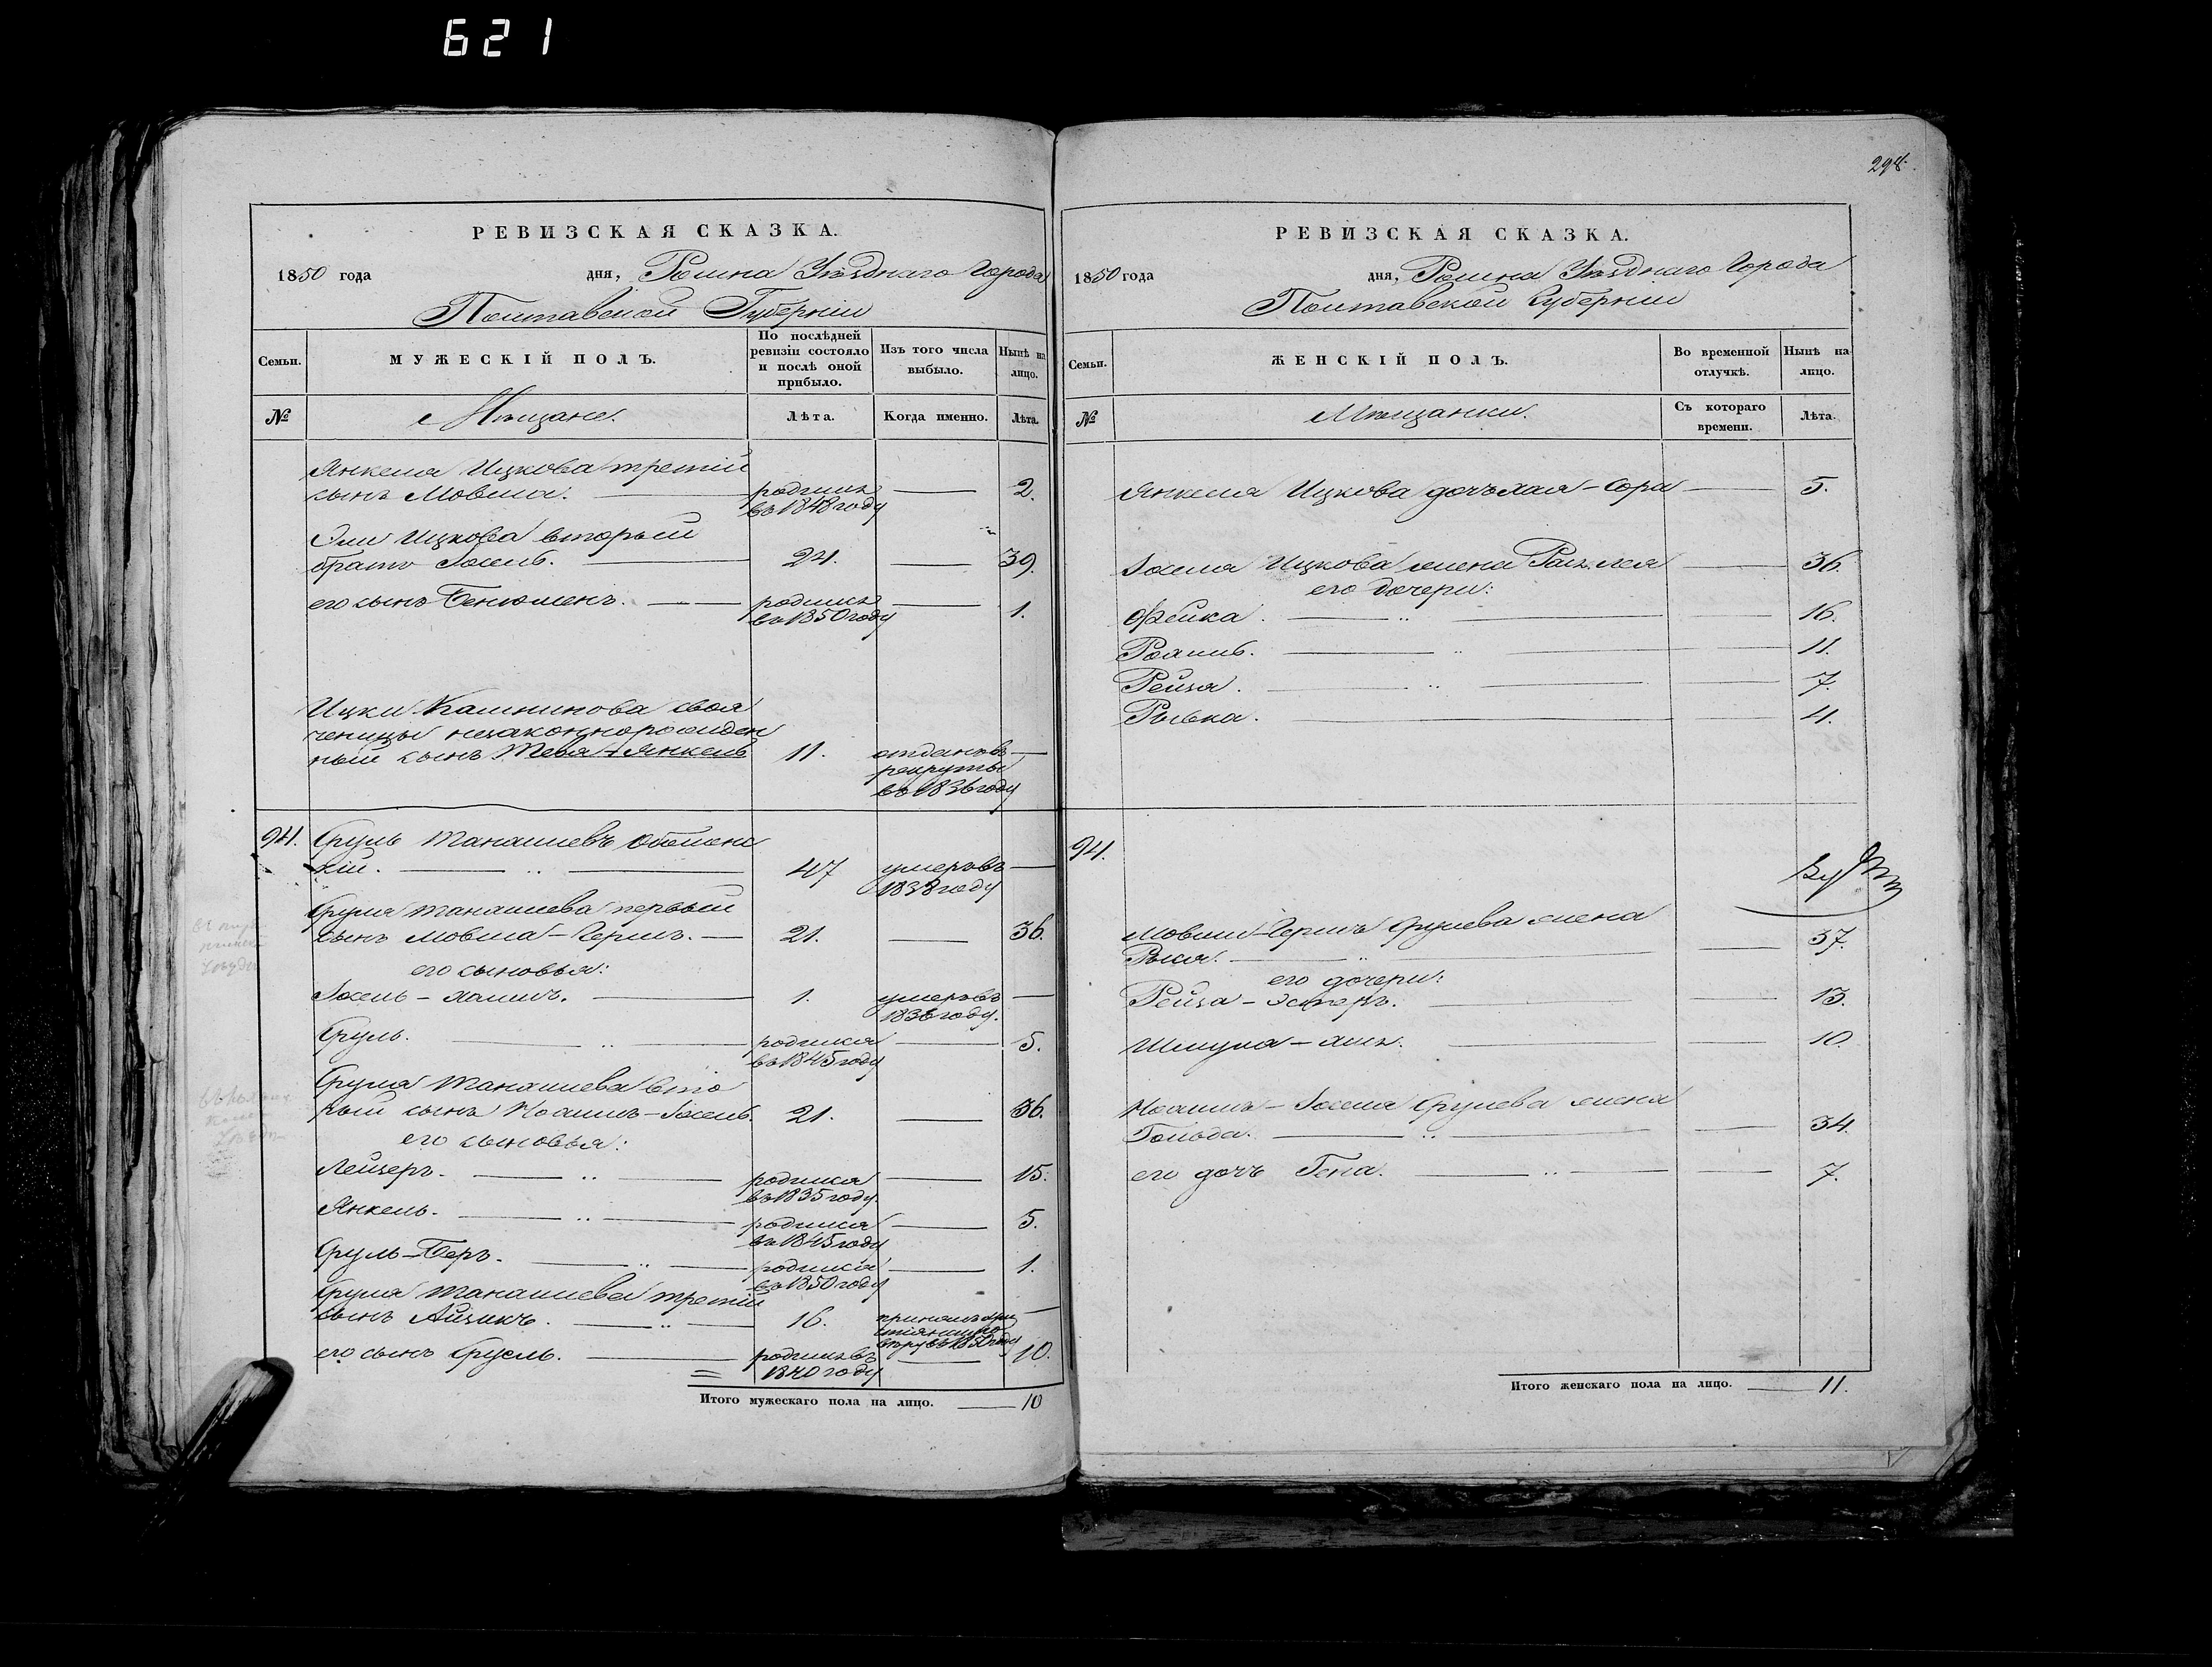 621
298.
РЕВИЗСКАЯ СКАЗКА.
1850 года дня, Ромна Уѣзднаго Города
Полтавской Губерніи
Семьи.
МУЖЕСКІЙ ПОЛЪ.
По послѣдней ревизіи состояло и послѣ оной прибыло.
Изъ того числа выбыло.
Нынѣ на лицо.
№
Мѣщане.
Лѣта.
Когда именно.
Лѣта.
Янкеля Ицкова третій
сынъ Мовша. родился въ 1848 году 2.
Эли Ицкова вторый
братъ Іосель. 24. 39.
его сынъ Бенюменъ. родился въ 1850 году 1.
Ицки Калминова своя
ченицы незаконнорожден
ный сынъ Тевя-Янкель 11. отданъ въ рекруты въ 1836 году
94. Сруль Манашевъ
кій. 47 умеръ въ 1838 году
Сруля Манашева первый
сынъ Мовша-Гершъ. 21. 36.
его сыновья:
Іосель-Хаимъ. 1. умеръ въ 1836 году.
Сруль. родился въ 1845 году 5.
Сруля Манашева вто
рый сынъ Іосель. 21. 36.
его сыновья:
Лейзеръ. родился въ 1835 году. 15.
Янкель. родился въ 1845 году 5.
Сруль-Беръ. родился въ 1850 году 1.
Сруля Манашева третій
сынъ Айзикъ. 16. принялъ вѣру въ 1850 году
его сынъ Срусль. родился въ 1840 году 10.
Итого мужескаго пола на лицо. 10
РЕВИЗСКАЯ СКАЗКА.
1850 года дня, Ромна Уѣзднаго Города
Полтавской Губерніи
Семьи.
ЖЕНСКІЙ ПОЛЪ.
Во временной отлучкѣ.
Нынѣ на лицо.
№
Мѣщанки.
Съ котораго времени.
Лѣта.
Янкеля Ицкова дочь Хая-Сора 5.
Іоселя Ицкова жена 36.
его дочери:
Фейка. 16.
11.
Рейза. 7.
Рывка. 4.
94.
Мовши-Герша Срулева жена
37.
его дочери:
Рейза-Эстеръ. 13.
10.
Іоселя Срулева жена
Гольда. 34.
его дочь Гена. 7.
Итого женскаго пола на лицо. 11.